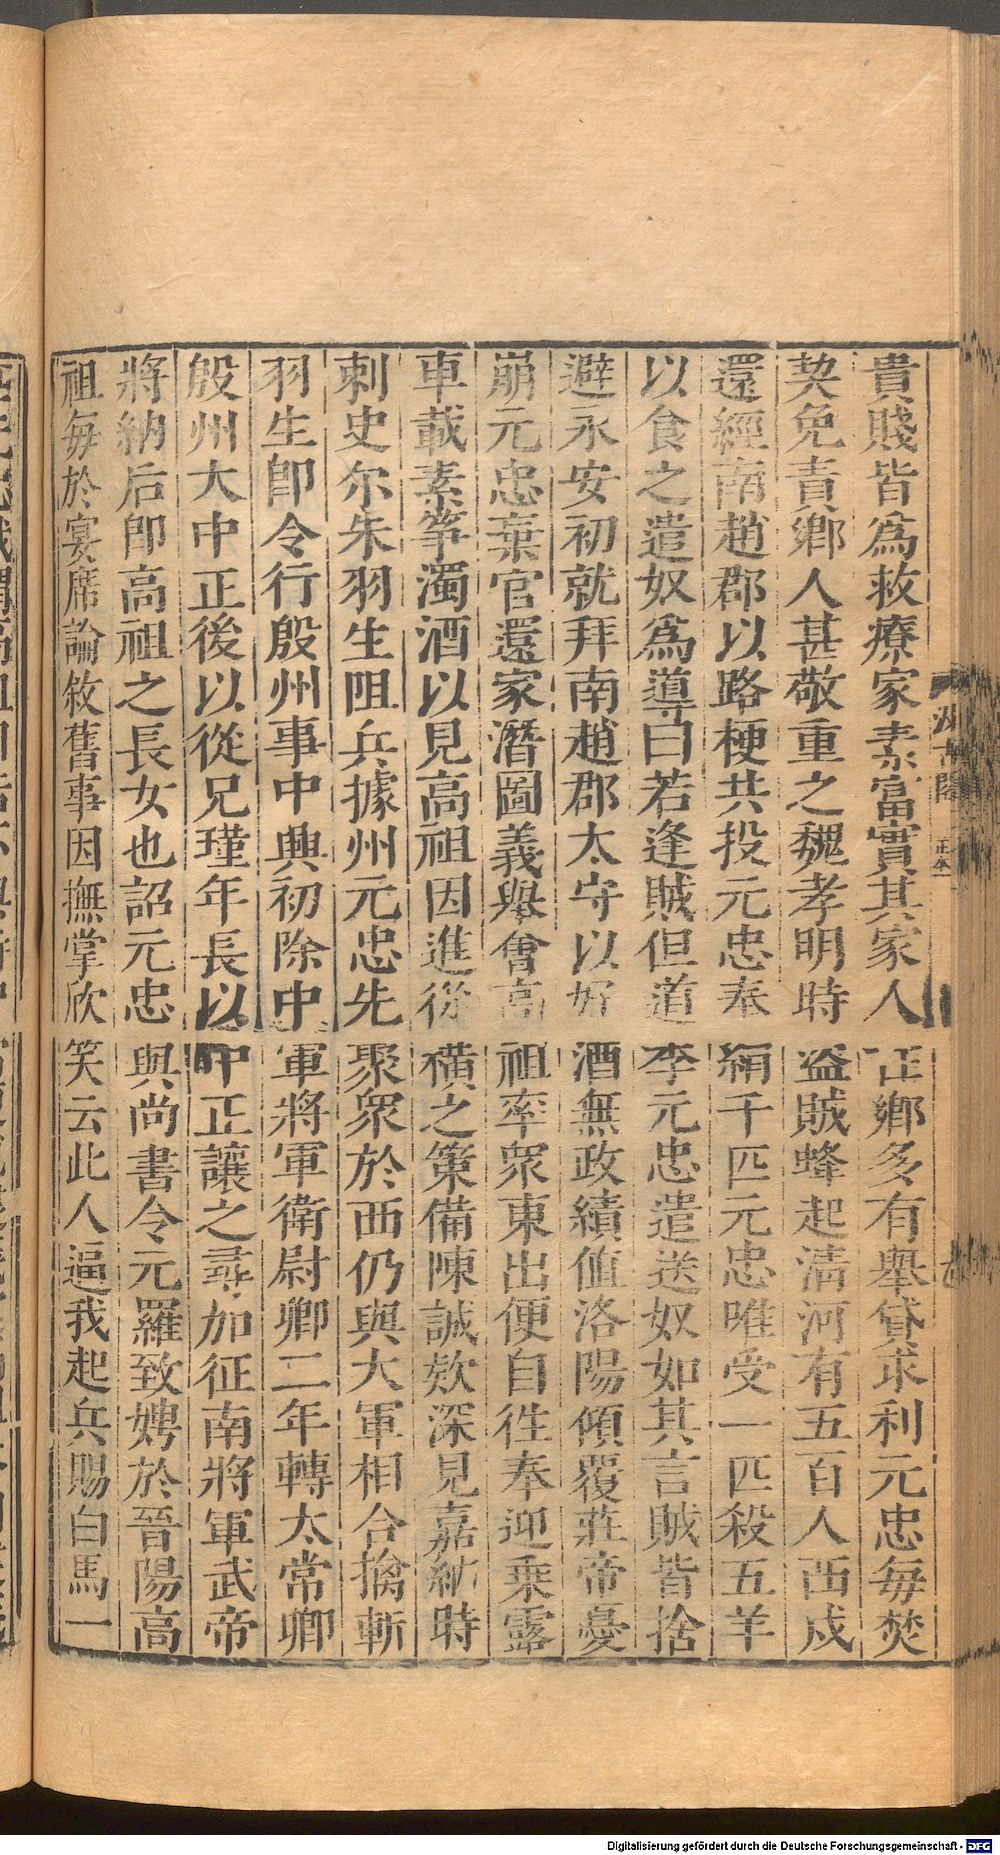 貴賤皆為救療家素富實其家人在鄉多有舉貸求利元忠每焚
契免責鄉人甚敬重之魏孝明時盜賊蜂起清河有五百人西戍
還經南趙郡以路梗共投元忠奉絹千匹元忠唯受一匹殺五羊
以食之遣奴為導曰若逢賊但道李元忠遣送奴如其言賊皆捨
避永安初就拜南趙郡太守以好酒無政績值洛陽傾覆莊帝憂
崩元忠棄官還家潛圖義舉會高祖率眾東出便自往奉迎乘露
車載素箏濁酒以見高祖因進從橫之策備陳誠款深見嘉納時
刺史尒朱羽生阻兵據州元忠先聚眾於西仍與大軍相合擒斬
羽生即令行殷州事中興初除中軍將軍衛尉卿二年轉太常卿
殷州大中正後以從兄瑾年長以中正讓之尋加征南將軍武帝
將納后即高祖之長女也詔元忠與尚書令元羅致娉於晉陽高
祖每於宴席論敘舊事因撫掌欣笑云此人逼我起兵賜白馬一
Digitalisierung gefördert durch die Deutsche Forschungsgemeinschaft - DFG